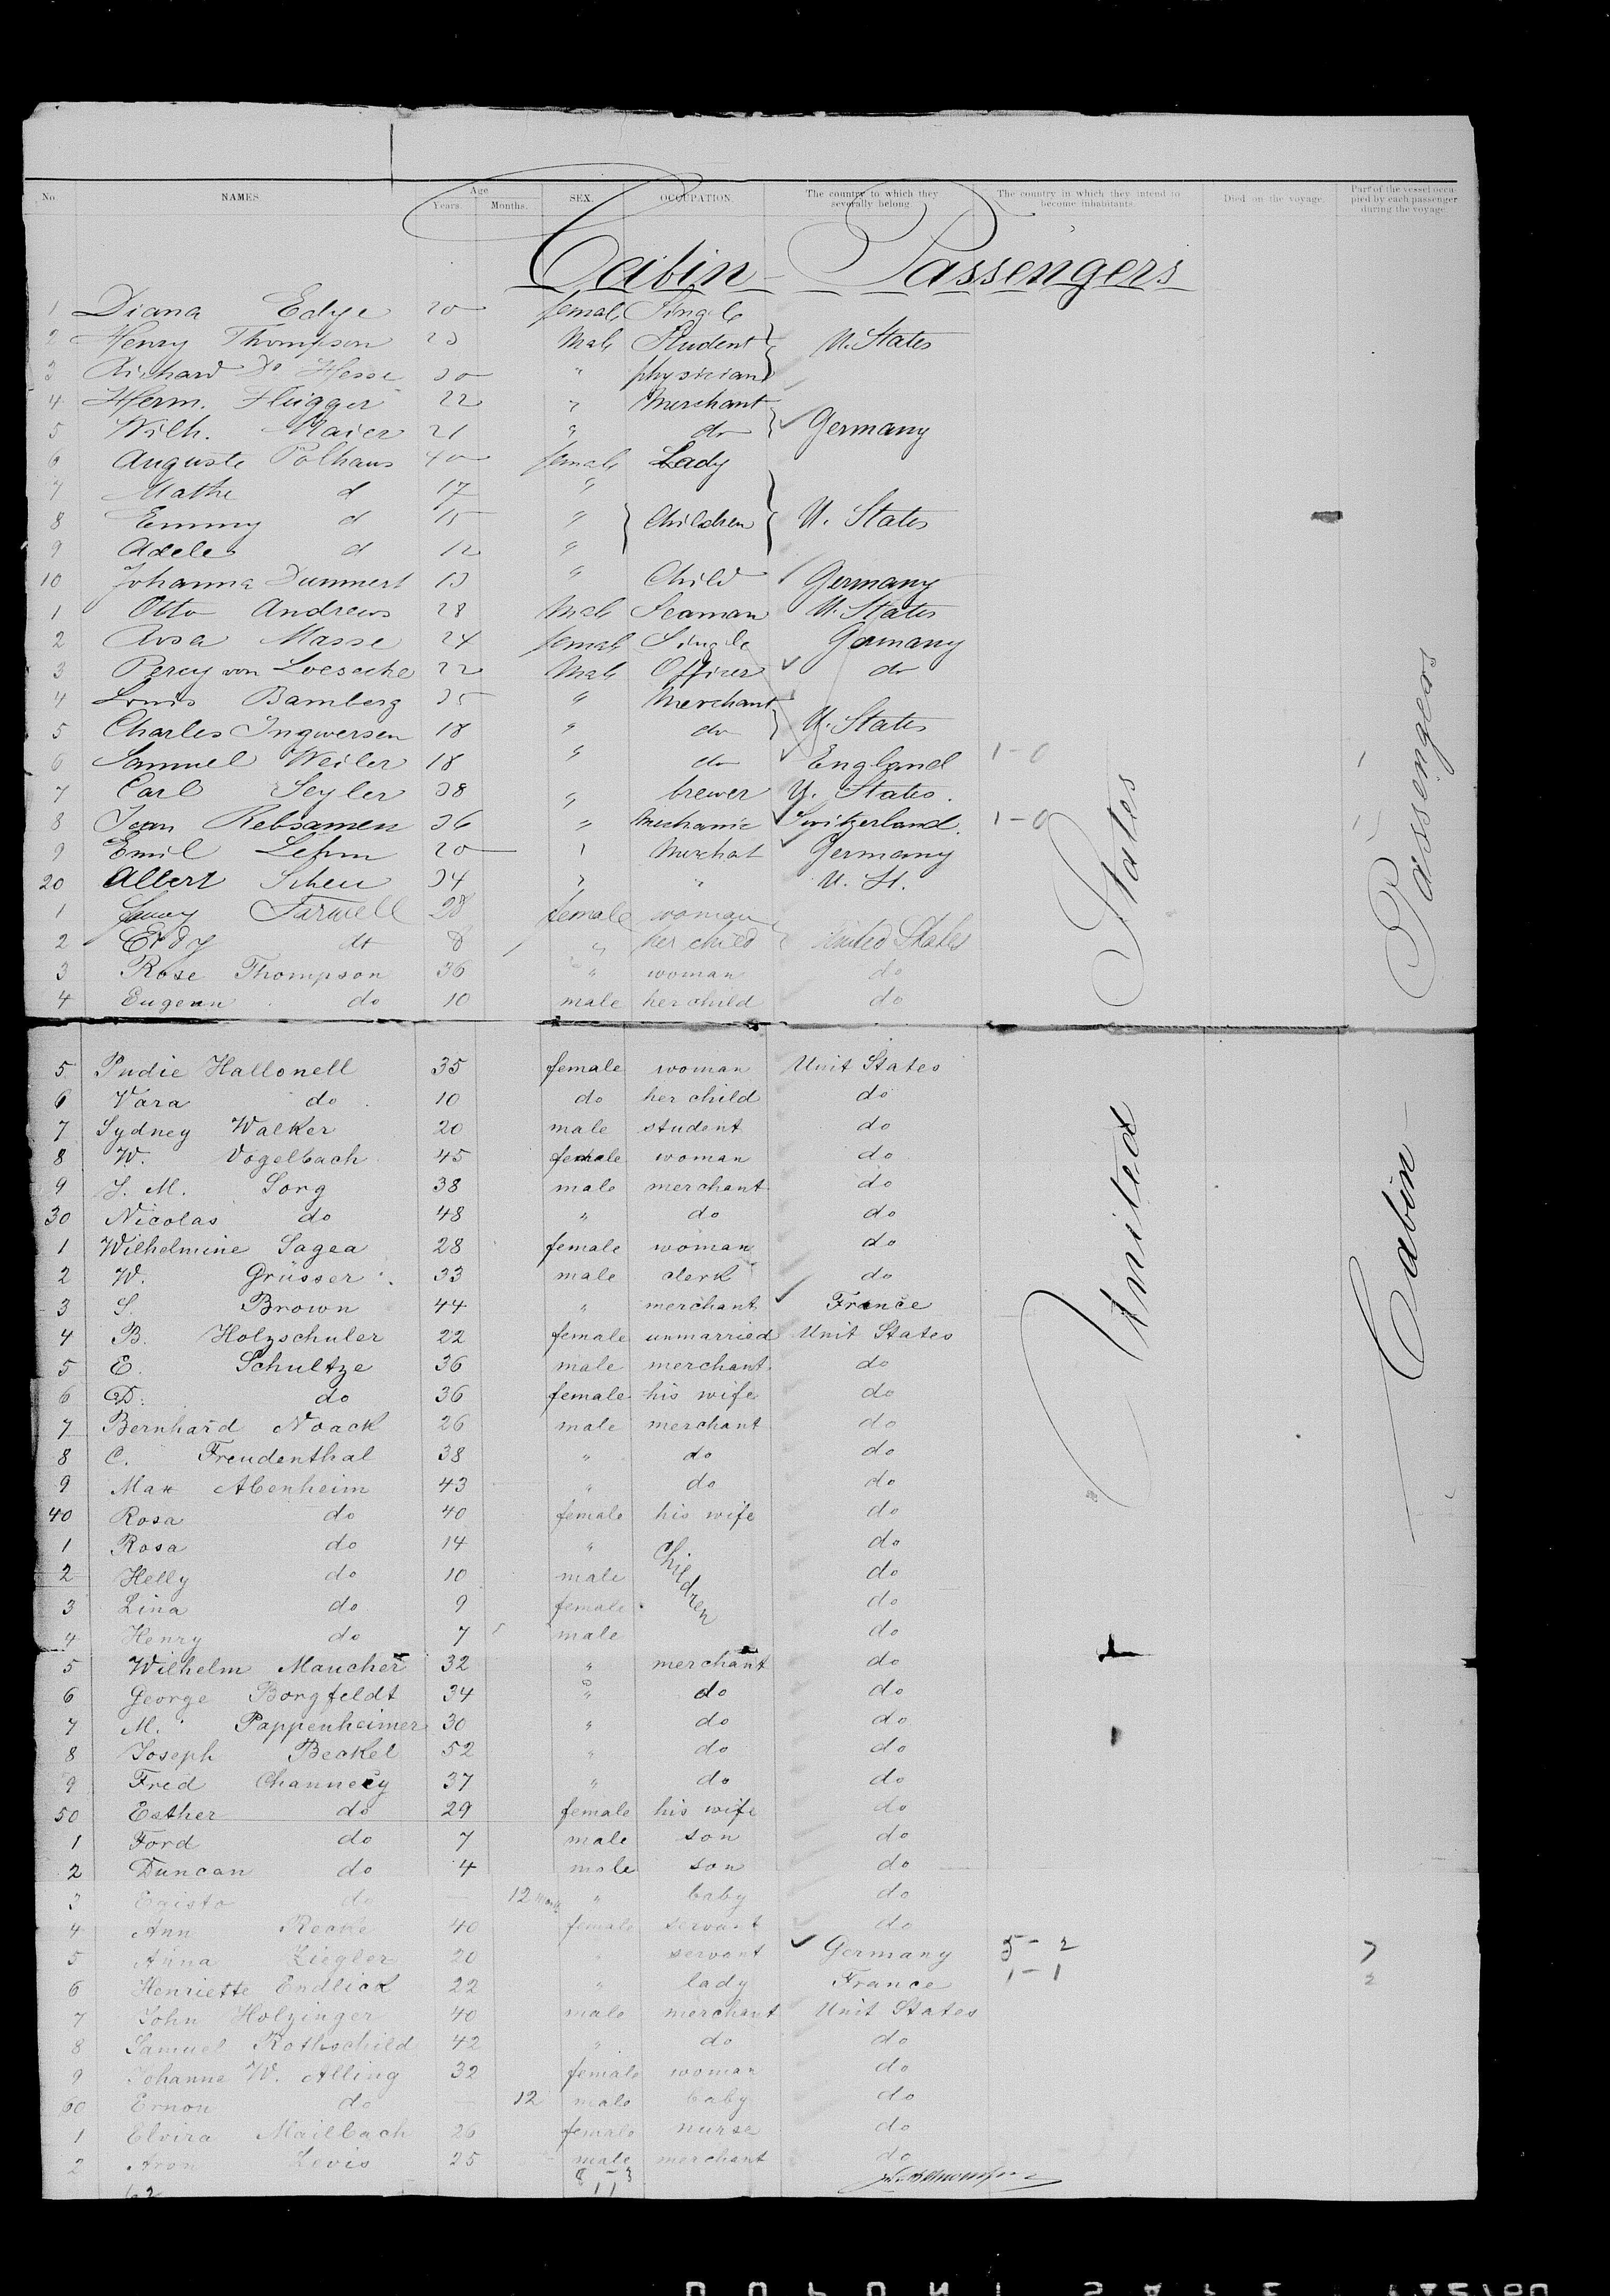 No NAMES. Age Years. Months. SEX. OCCUPATION. The country to which they severally belong. The country in which they intend to become inhabitants. Died on the voyage. Part of the vessel occupied by each passenger during the voyage.
Cabin Passengers
1 Diana Edye 20 female Single
2 Henry Thompson 23 Male Student U. States
3 Richard Dr Hesse 30 " physician
4 Herm. Flügger 22 " Merchant
5 Wilh. Maier 21 " do Germany
6 Auguste Polhaus 40 female Lady
7 Mathe d 17 "
8 Emmy d 15 " Children U. States
9 Adele d 12 "
10 Johanna Dummert 13 " Child Germany
1 Otto Andrews 28 Male Seaman U. States
2 Rosa Masse 24 female Single Germany
3 Percy von Loesecke 22 Male Officer do
4 Louis Bamberg 35 " Merchant
5 Charles Ingwersen 18 " do U. States
6 Samuel Weiler 18 " do England 1-0
7 Carl Seyler 38 " brewer U. States.
8 Jean Rebsamen 36 " Mechanic Switzerland. 1-0
9 Emil Lehm 20 " Merchat Germany
20 Albert Scheu 34 " " U. St.
1 Farwell 28 female woman
2 do 8 " her child United States
3 Rose Thompson 36 " woman do
4 Eugenn do 10 male her child do
5 Pudie Hallonell 35 female woman Unit States
6 Vara do 10 do her child do
7 Sydney Walker 20 male student do
8 W. Vogelbach 45 female woman do
9 J. M. Sorg 38 male merchant do
30 Nicolas do 48 " do do
1 Wilhelmine Sagea 28 female woman do
2 W. Grüsser 33 male clerk do
3 S. Brown 44 " merchant France
4 B. Holzschuler 22 female unmarried Unit States
5 E. Schultze 36 male merchant do
6 D. do 36 female his wife do
7 Bernhard Noack 26 male merchant do
8 C. Freudenthal 38 " do do
9 Max Abenheim 43 " do do
40 Rosa do 40 female his wife do
1 Rosa do 14 " Children do
2 Helly do 10 male do
3 Lina do 9 female do
4 Henry do 7 male do
5 Wilhelm Maucher 32 " merchant do
6 George Borgfeldt 34 " do do
7 M. Pappenheimer 30 " do do
8 Joseph Beakel 52 " do do
9 Fred Channecy 37 " do do
50 Esther do 29 female his wife do
1 Ford do 7 male son do
2 Duncan do 4 male son do
3 Egisto do 12 " baby do
4 Ann Reake 40 female servant do
5 Anna Ziegler 20 " servant Germany 5-2
6 Henriette Endlick 22 " lady France 1-1
7 John Holzinger 40 male merchant Unit States
8 Samuel Rothschild 42 " do do
9 Johanne W. Alling 32 female woman do
60 Ernon do 12 male baby do
1 Elvira Mailbach 26 female nurse do
2 Aron Levis 25 male merchant do
62
United States
Cabin Passengers